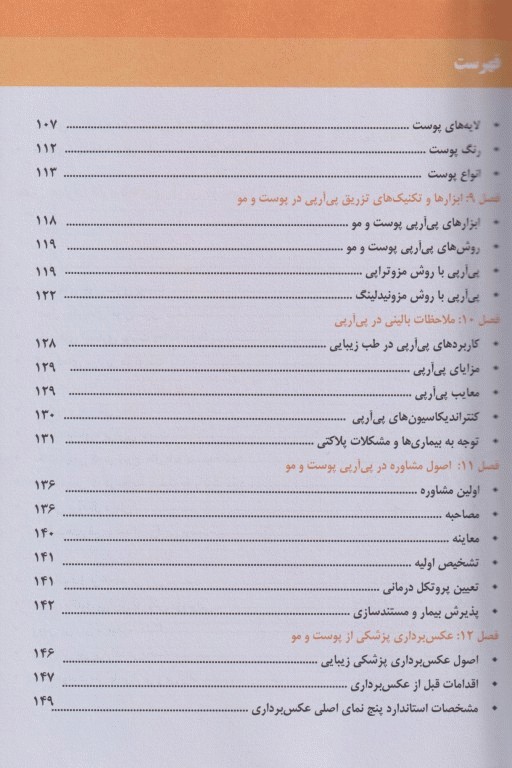 فهرست
• لایه‌های پوست ........ ۱۰۷
• رنگ پوست ........ ۱۱۲
• انواع پوست ........ ۱۱۳
فصل ۹: ابزارها و تکنیک‌های تزریق پی‌آرپی در پوست و مو
• ابزارهای پی‌آرپی پوست و مو ........ ۱۱۸
• روش‌های پی‌آرپی پوست و مو ........ ۱۱۹
• پی‌آرپی با روش مزوتراپی ........ ۱۱۹
• پی‌آرپی با روش مزونیدلینگ ........ ۱۲۲
فصل ۱۰: ملاحظات بالینی در پی‌آرپی
• کاربردهای پی‌آرپی در طب زیبایی ........ ۱۲۸
• مزایای پی‌آرپی ........ ۱۲۹
• معایب پی‌آرپی ........ ۱۲۹
• کنتراندیکاسیون‌های پی‌آرپی ........ ۱۳۰
• توجه به بیماری‌ها و مشکلات پلاکتی ........ ۱۳۱
فصل ۱۱: اصول مشاوره در پی‌آرپی پوست و مو
• اولین مشاوره ........ ۱۳۶
• مصاحبه ........ ۱۳۶
• معاینه ........ ۱۴۰
• تشخیص اولیه ........ ۱۴۱
• تعیین پروتکل درمانی ........ ۱۴۱
• پذیرش بیمار و مستندسازی ........ ۱۴۲
فصل ۱۲: عکس‌برداری پزشکی از پوست و مو
• اصول عکس‌برداری پزشکی زیبایی ........ ۱۴۶
• اقدامات قبل از عکس‌برداری ........ ۱۴۷
• مشخصات استاندارد پنج نمای اصلی عکس‌برداری ........ ۱۴۹